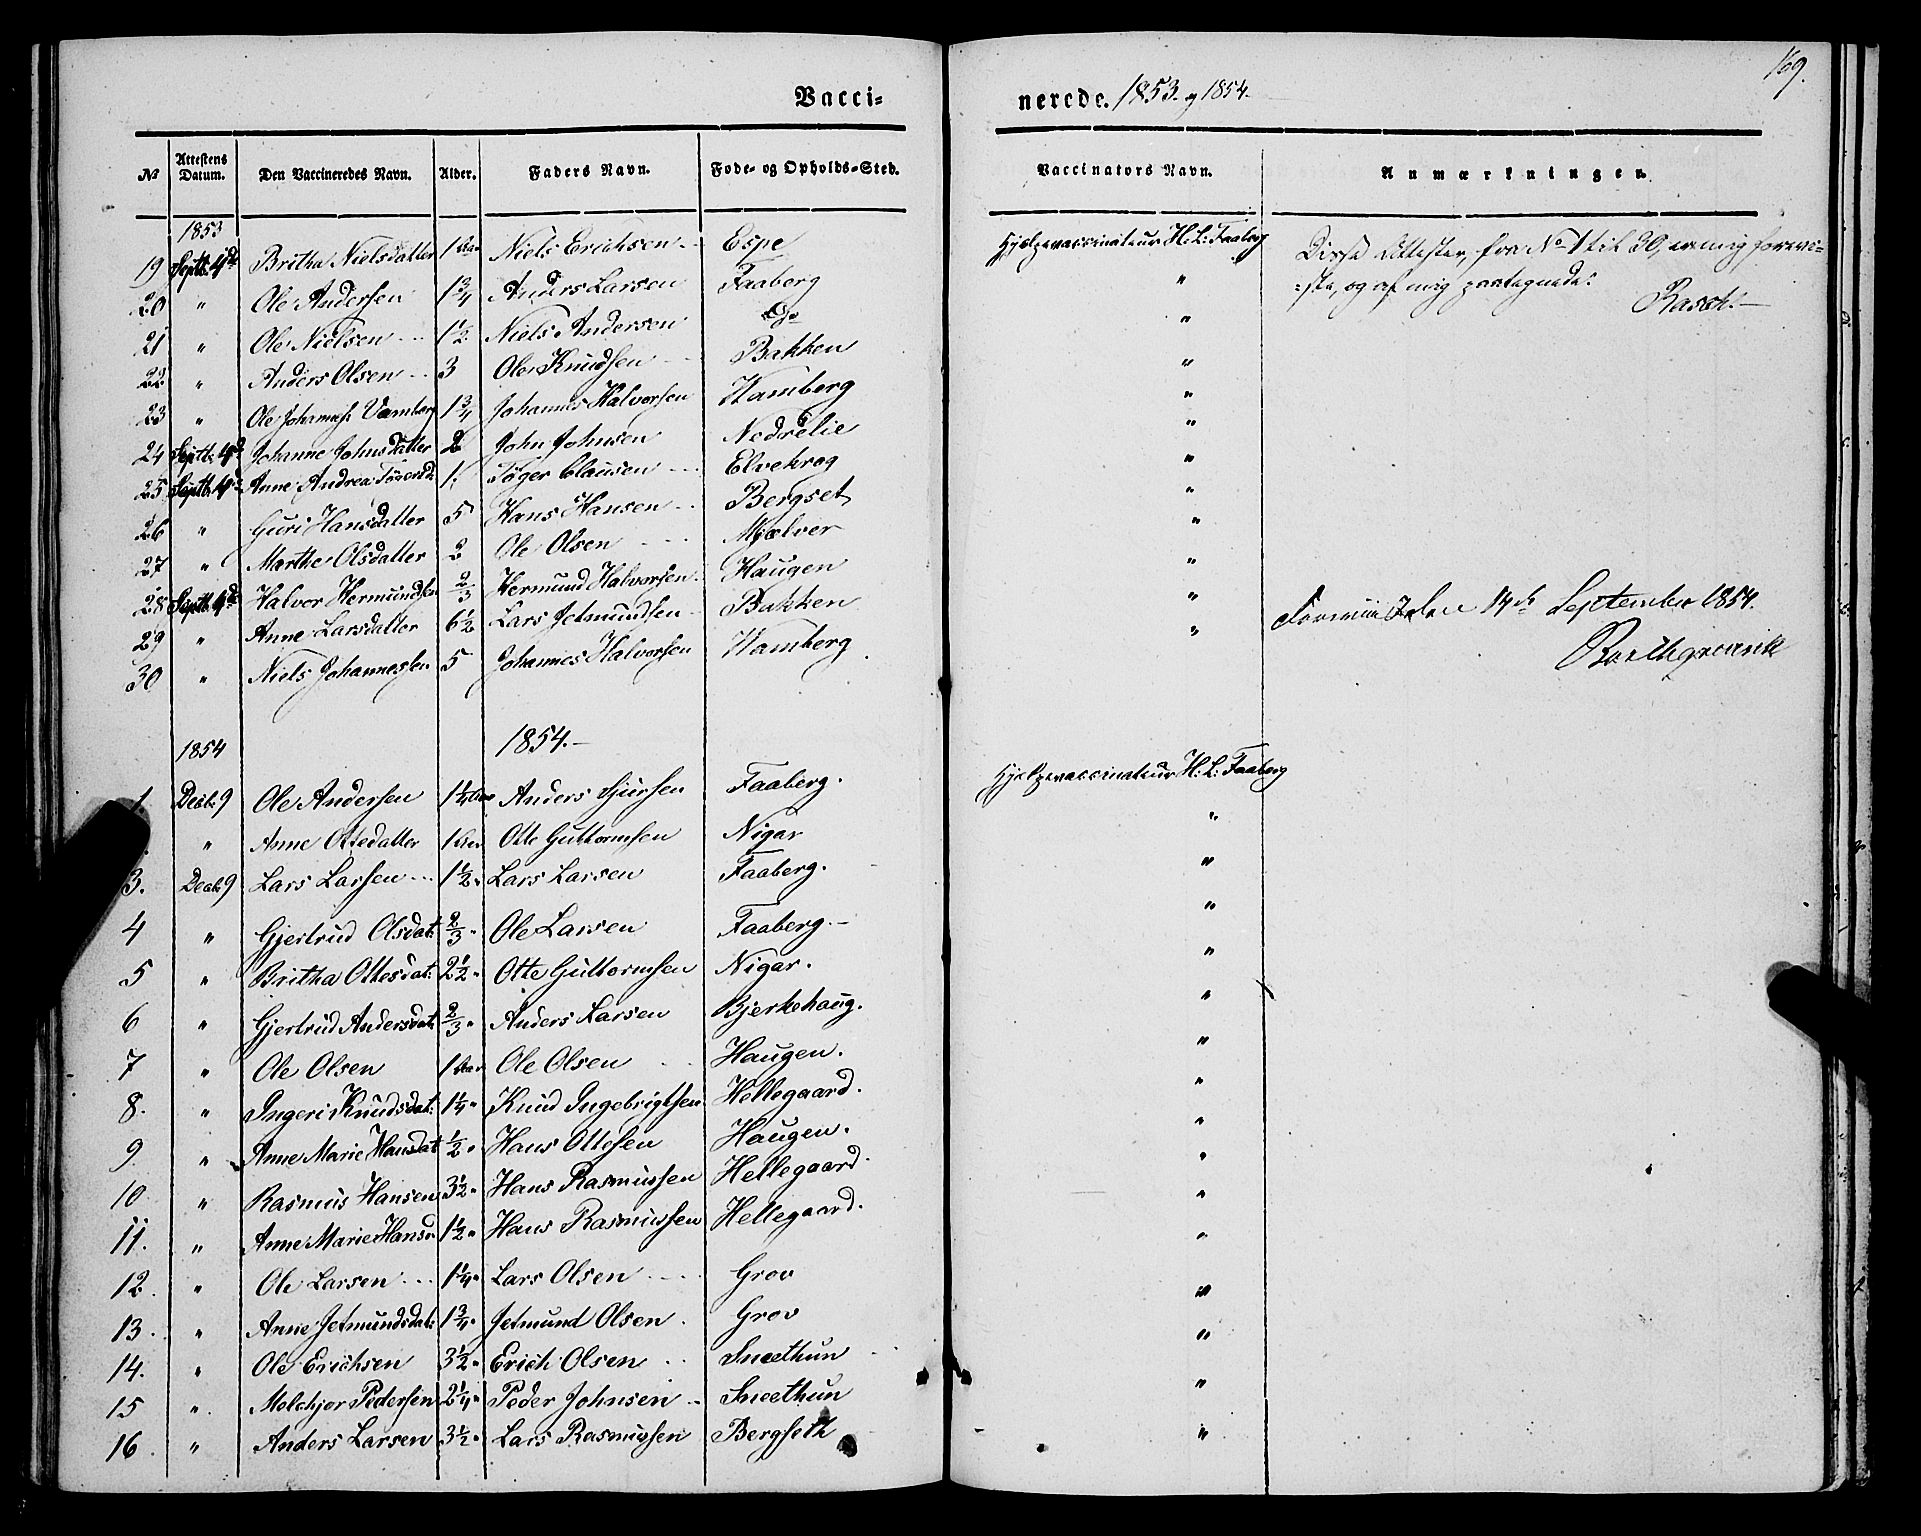 169.
Vacci-
nerede. 1853. og 1854.
No Attestens Datum. Den Vaccineredes Navn. Alder. Faders Navn. Føde- og Opholds-Sted. Vaccinators Navn. Anmærkninger.
1853
19 Septb. 4d Britha Nielsdatter 1 Aar Niels Erichsen Espe Hjelpevaccinateur H: L: Faaberg Disse Attester, fra No 1 til 30, er mig forevi-
20 " Ole Andersen 1 3/4 Anders Larsen Faaberg " =ste, og af mig paategnede:
Rasch.
21 " Ole Nielsen 1 1/2 Niels Andersen Do "
22 " Anders Olsen 3 Ole Knudsen Bakken "
23 " Ole Johannes. Vamberg 1 3/4 Johannes Halvorsen Wamberg "
24 Septb. 4d Johanne Johnsdatter 2 John Johnsen Nedrelie "
25 Septb. 4d Anne Andrea Tögersd. 1. Töger Clausen Elvekrog "
26 " Guri Hansdatter 5 Hans Hansen Bergset "
27 " Marthe Olsdatter 2 Ole Olsen Mjelver "
28 Septb. 4d Halvor Hermundsen 2/3 Hermund Halvorsen Haugen "
29 " Anne Larsdatter 6 1/2 Lars Jetmundsen Bakken " Foreviist den 14de September 1854.
30 " Niels Johannessen 5 Johannes Halvorsen Wamberg "
1854 1854.
1. Decbr. 9 Ole Andersen 1 1/4 Aar Anders Sjursen Faaberg. Hjelpevaccinateur H: L: Faaberg
" Anne Ottedatter 1 Aar Otte Guttormsen Nigar "
3. Decbr. 9 Lars Larsen 1 1/2 " Lars Larsen Faaberg. "
4 " Gjertrud Olsdat: 2/3 " Ole Larsen Faaberg. "
5 " Britha Ottesdat: 2 1/2 " Otte Guttormsen Nigar. "
6 " Gjertrud Andersdat: 2/3 " Anders Larsen Bjerkehaug. "
7 " Ole Olsen 1 Aar Ole Olsen Haugen. "
8. " Ingeri Knudsdat: 1 1/4 " Knud Ingebrigtsen Hellegaard. "
9. " Anne Marie Hansdat 1/2 " Hans Ottesen Haugen. "
10 " Rasmus Hansen 3 1/2 " Hans Rasmussen Hellegaard. "
11. " Anne Marie Hansd 1 1/2 " Hans Rasmussen Hellegaard. "
12. " Ole Larsen 1 1/4 " Lars Olsen Grov "
13. " Anne Jetmundsdat: 1 3/4 " Jetmund Olsen Grov "
14. " Ole Erichsen 3 1/2 " Erich Olsen Sneethun "
15 " Melchjor Pedersen 2 1/4 " Peder Johnsen Sneethun "
16. " Anders Larsen 3 1/2 " Lars Rasmussen Bergseth "